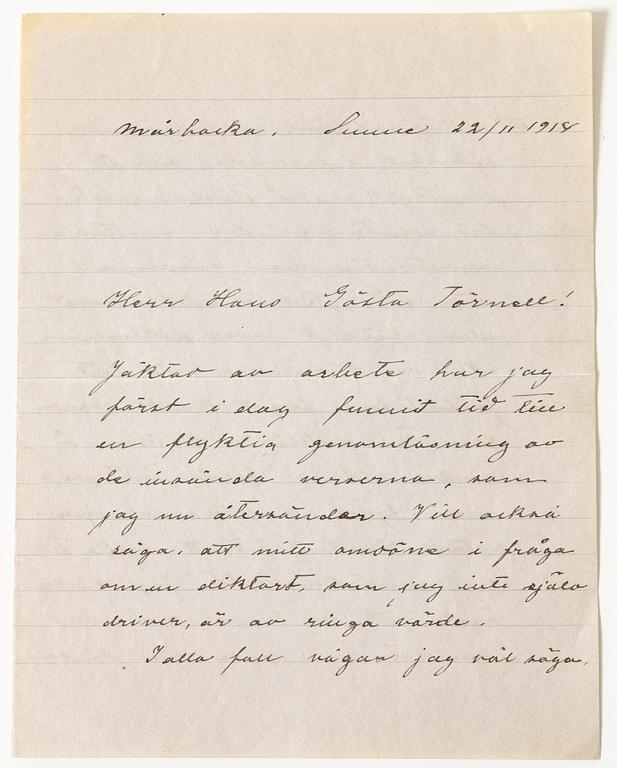 Mårbacka. Sunne 22/11 1918
Herr Hans Gösta Törnell!
Jäktad av arbete har jag
först i dag funnit tid till
en flyktig genomläsning av
de insända verserna, som
jag nu återsänder. Vill också
säga, att mitt omdöme i fråga
om en diktart, som jag inte själv
driver, är av ringa värde.
I alla fall vågar jag väl säga,